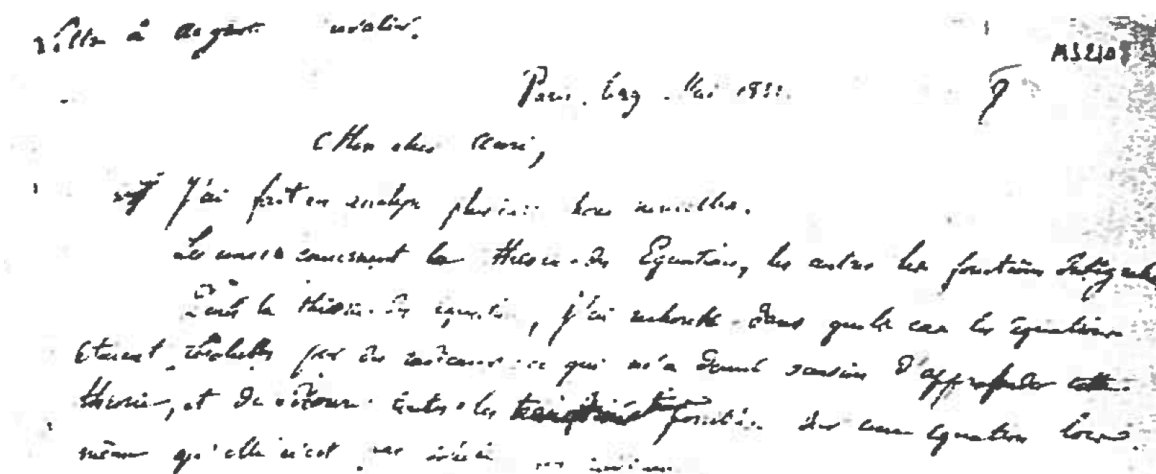 Lettre à Auguste
Paris, le 29 Mai 1832.
Mon cher Ami,
J'ai fait en analyse plusieurs choses nouvelles.
Les unes concernent la théorie des Equations, les autres les fonctions Intégrales
Dans la théorie des équations, j'ai recherché dans quels cas les équations
étaient résolubles par des radicaux: ce qui m'a donné occasion d'approfondir cette
théorie, et de décrire toutes les transformations sur une équation lors
même qu'elle n'est pas